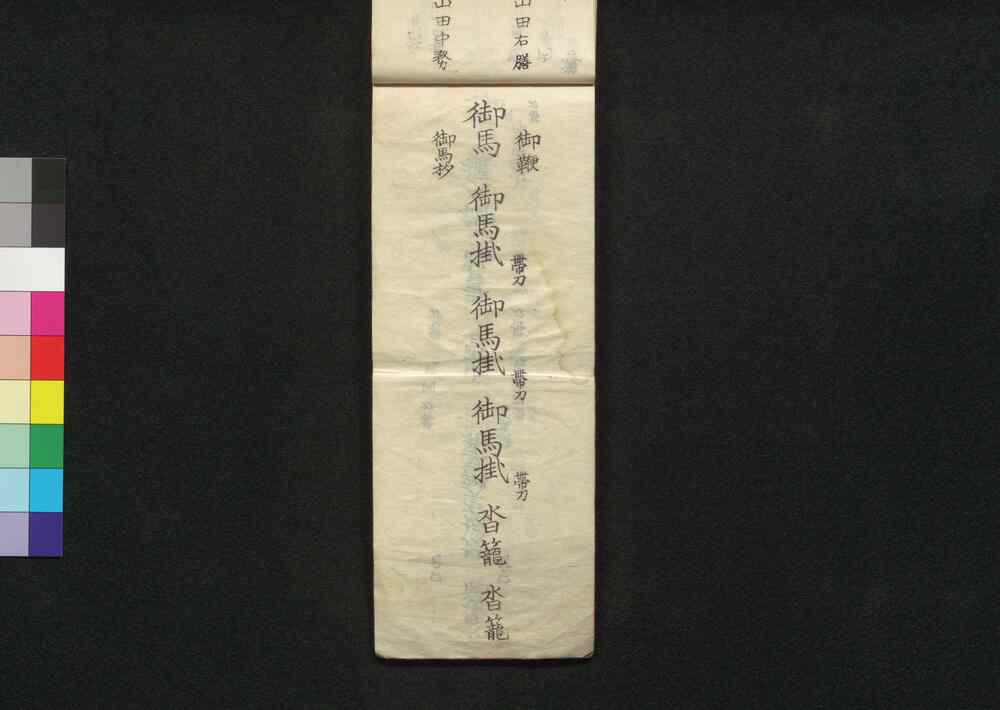 山田右膳
山田中務
御鞭
帯刀
帯刀
帯刀
御馬
御馬掛
御馬掛
御馬掛
沓籠
沓籠
御馬杪